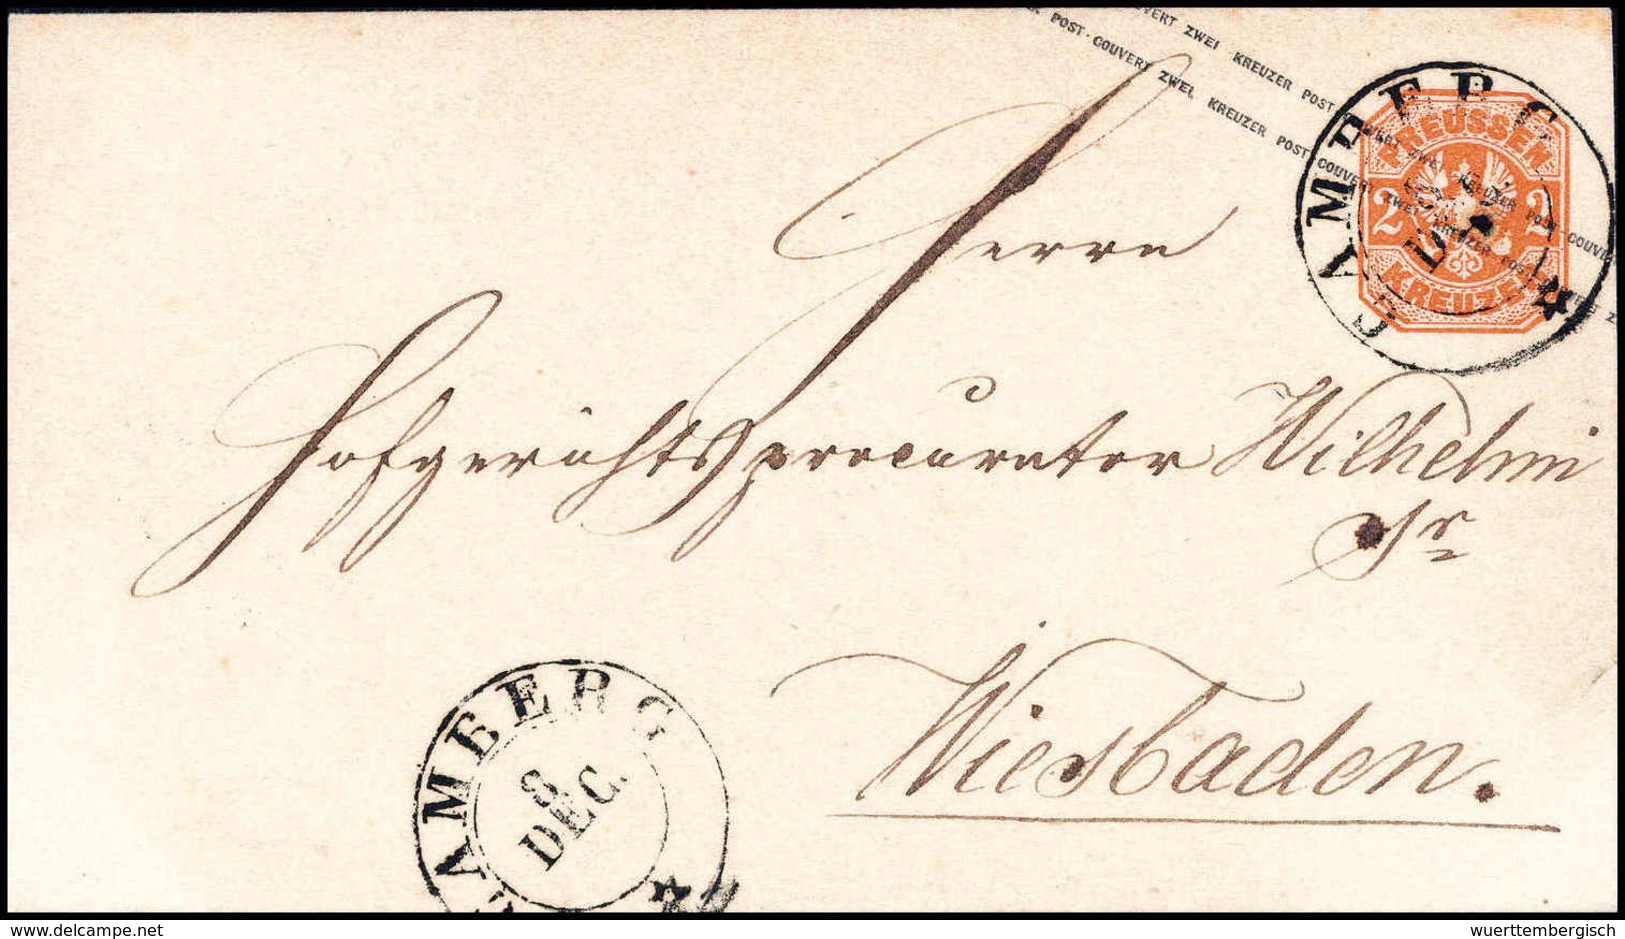 POST·COUVERT ZWEI KREUZER POST
POST·COUVERT ZWEI KREUZER POST·COUVERT ZWEI KREUZER POST
CAMBERG
PREUSSEN
2 2
KREUZER
Herrn
Hofgerichtsprocurator Wilhelmi
Sr
Wiesbaden.
CAMBERG
8
DEC.
www.delcampe.net
wuerttembergisch